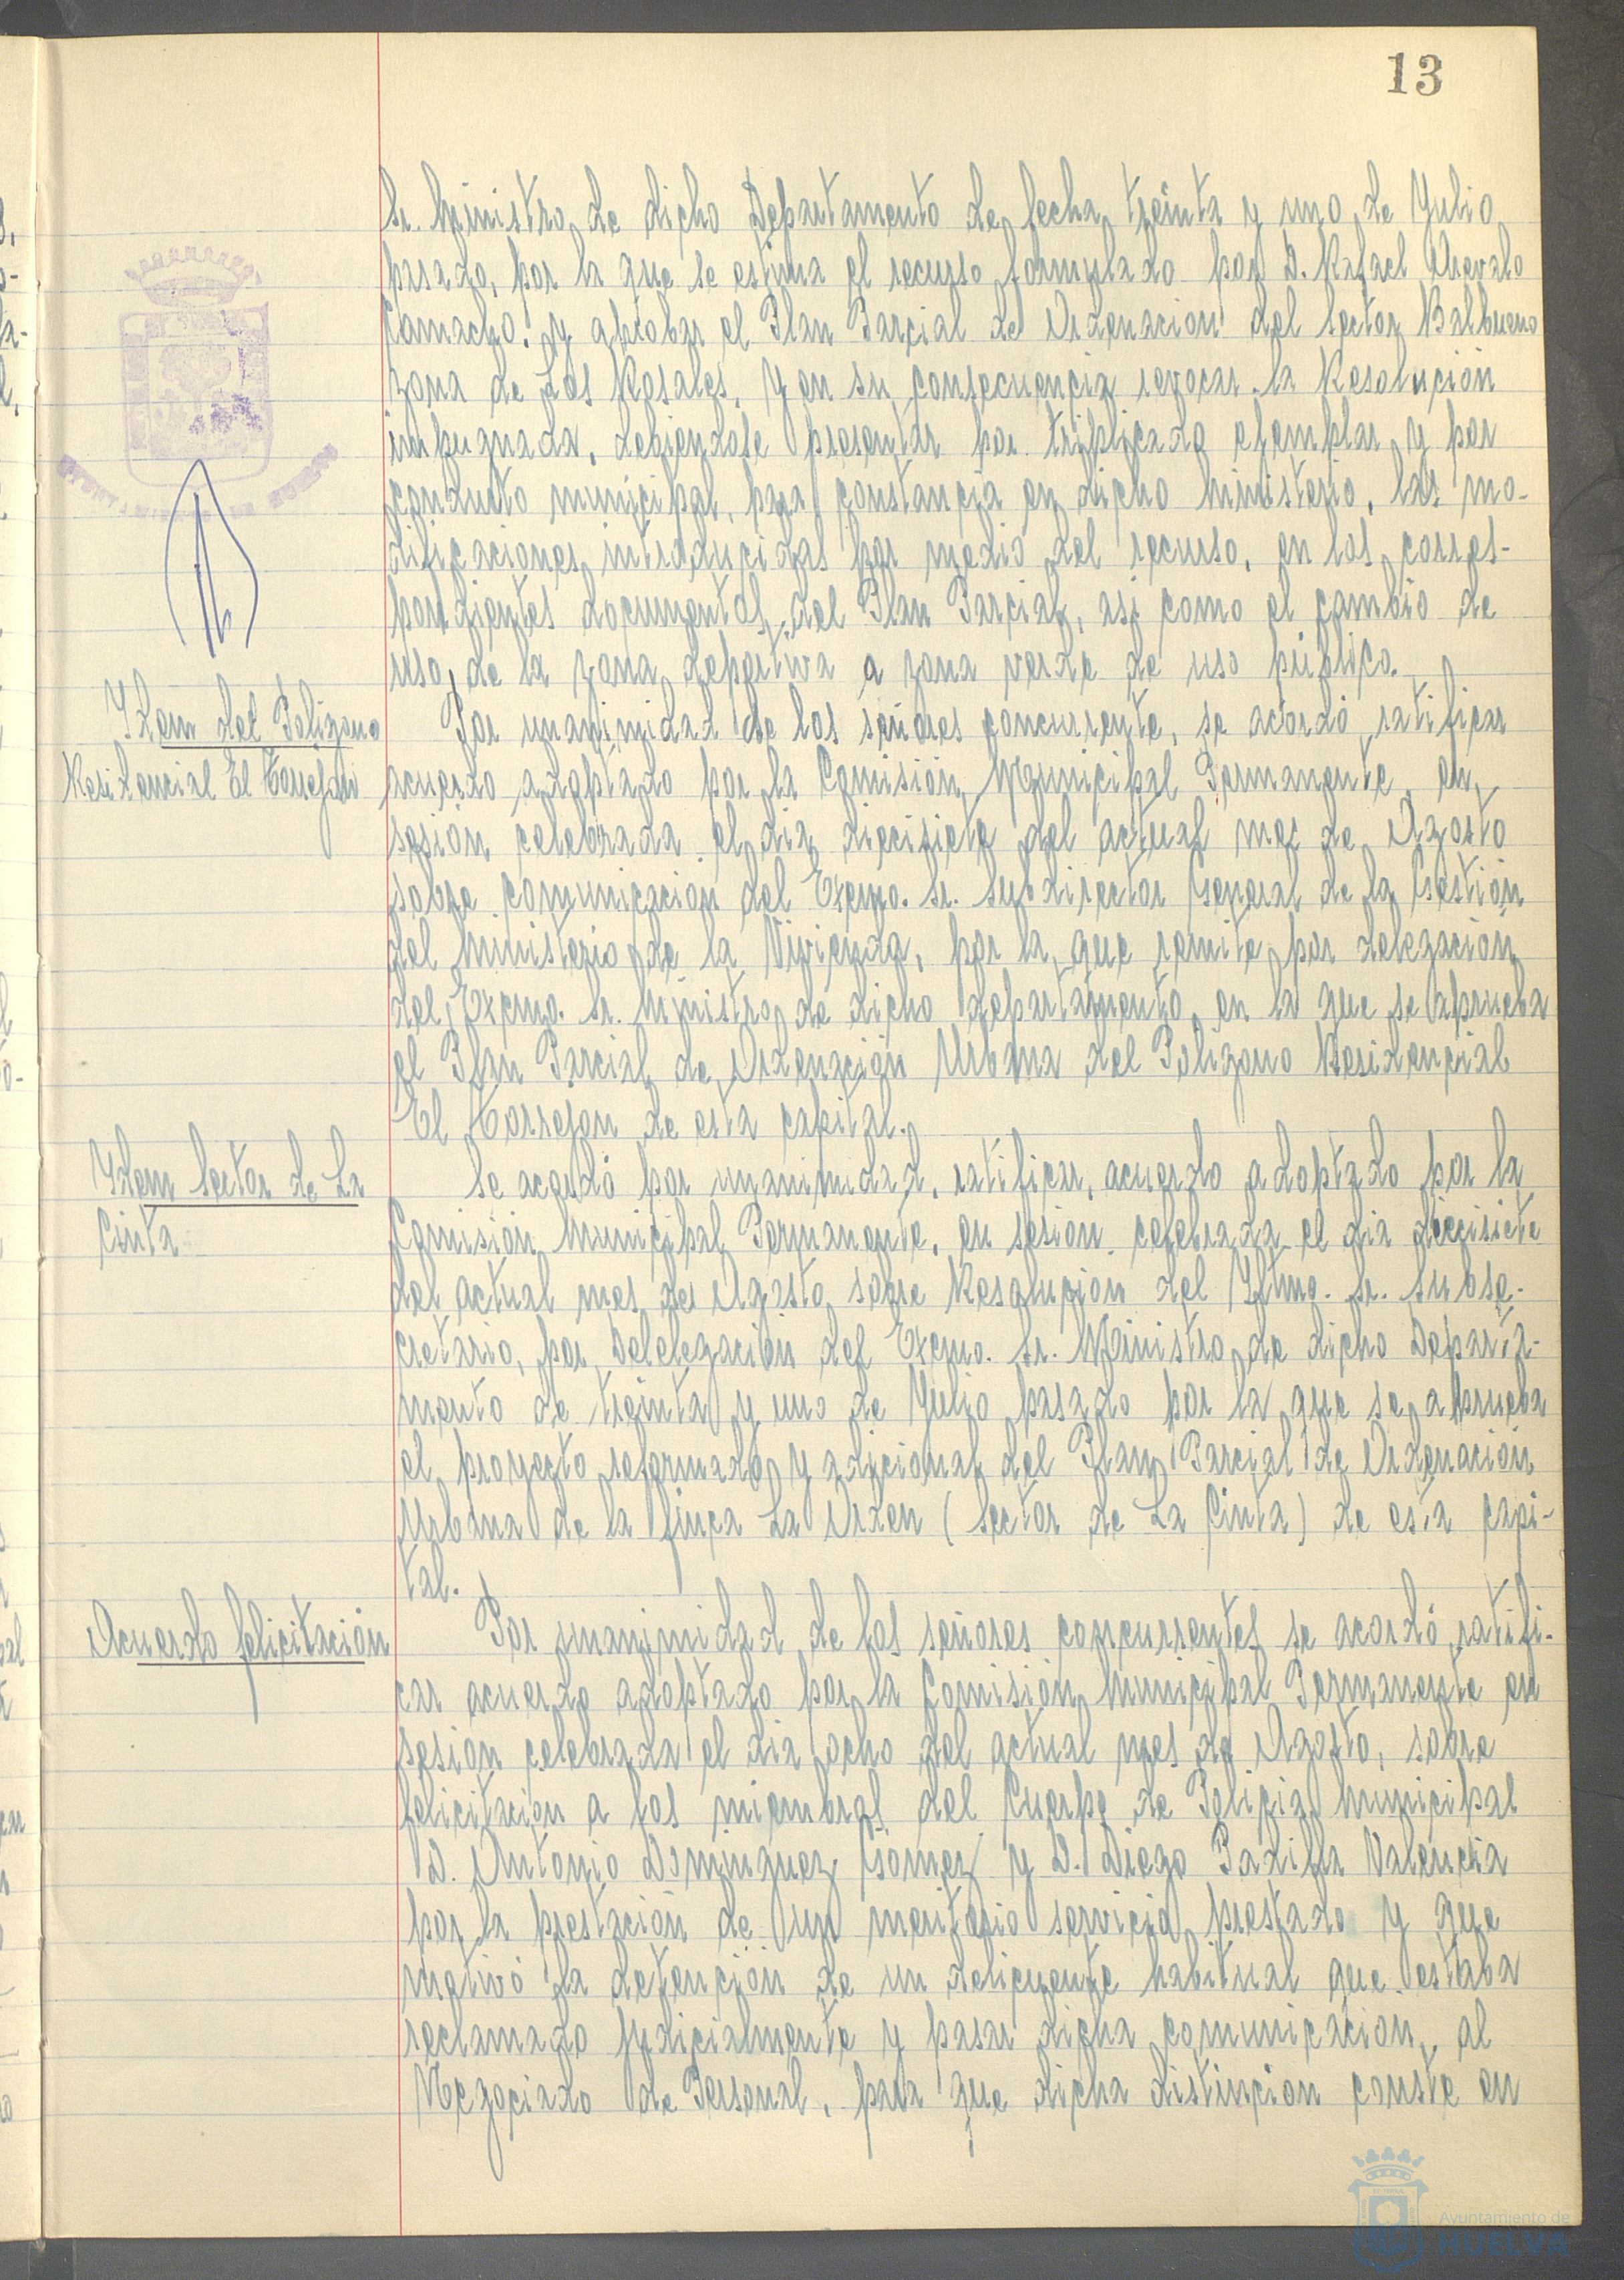 13
Sr. Ministro de dicho Departamento de fecha treinta y uno de Julio
pasado, por la que se estima el recurso formulado por D. Rafael Arevalo
Camacho, y aprobar el Plan Parcial de Ordenación del Sector Balbueno
zona de Los Rosales, y en su consecuencia revocar la Resolución
impugnada, debiendose presentar por triplicado ejemplar y por
conducto municipal, para constancia en dicho Ministerio, las mo-
dificaciones introducidas por medio del recurso, en los corres-
pondientes documentos del Plan Parcial, asi como el cambio de
uso de la zona deportiva a zona verde de uso publico.
Ydem del Poligono
Residencial El Torrejon
Por unanimidad de los señores concurrente, se acordó ratificar
acuerdo adoptado por la Comisión Municipal Permanente en
sesión celebrada el dia diecisiete del actual mes de Agosto
sobre comunicación del Excmo. Sr. Subdirector General de la Gestión
del Ministerio de la Vivienda, por la que remite por delegación
del Excmo. Sr. Ministro de dicho departamento en la que se aprueba
el Plan Parcial de Ordenación Urbana del Poligono Residencial
El Torrejon de esta capital.
Ydem Sector de La
Cinta
Se acordó por unanimidad, ratificar, acuerdo adoptado por la
Comisión Municipal Permanente, en sesión celebrada el dia diecisiete
del actual mes de Agosto sobre Resolución del Yltmo. Sr. Subse-
cretario, por Delelegación del Excmo. Sr. Ministro de dicho Departa-
mento de treinta y uno de Julio pasado por la que se aprueba
el proyecto reformado y adicional del Plan Parcial de Ordenación
Urbana de la finca La Orden (Sector de La Cinta) de esta capi-
tal.
Acuerdo felicitación
Por unanimidad de los señores concurrentes se acordó ratifi-
car acuerdo adoptado por la Comisión Municipal Permanente en
sesión celebrada el dia ocho del actual mes de Agosto, sobre
felicitación a los miembros del Cuerpo de Policia Municipal
D. Antonio Dominguez Gomez y D. Diego Padilla Valencia
por la prestación de un meritorio servicio prestado y que
motivó la detención de un delicuente habitual que estaba
reclamado judicialmente y pasar dicha comunicación al
Negociado de Personal, para que dicha distinción conste en
Ayuntamiento de
HUELVA